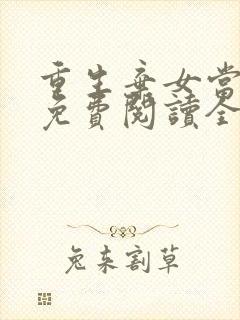 重生棄女當
免費閱讀全
兔來割草